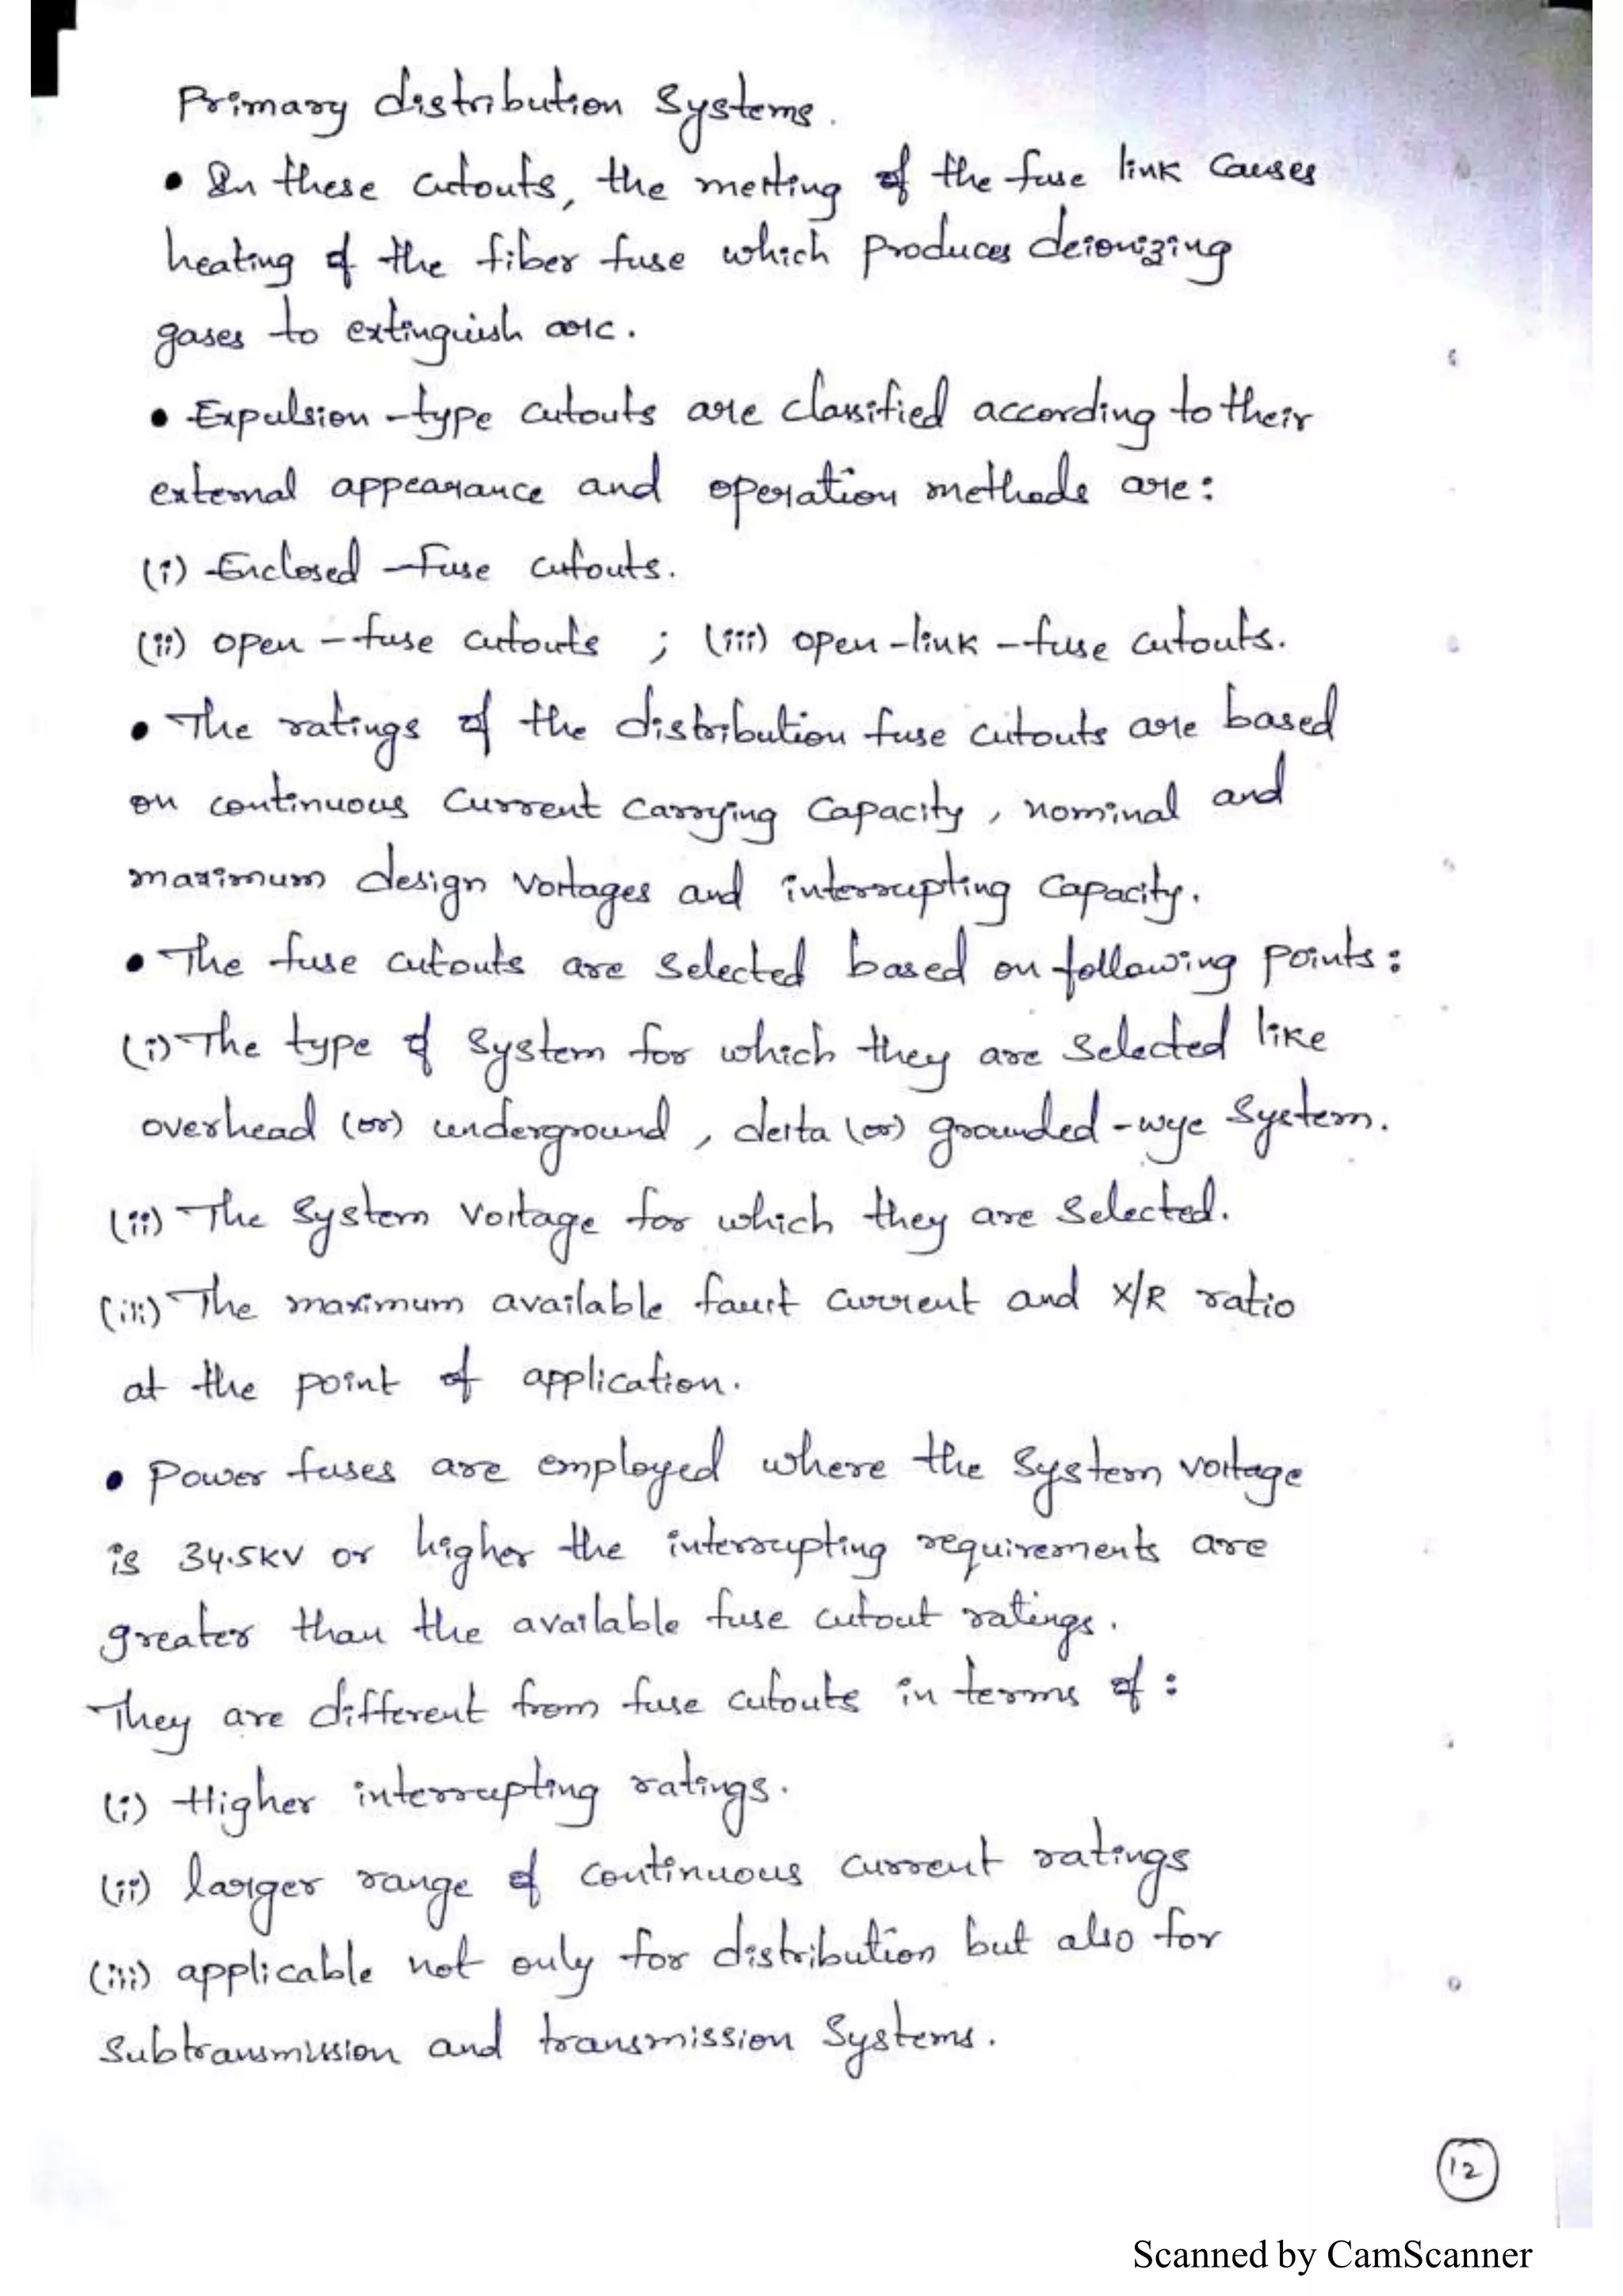 Primary distribution Systems.
• In these cutouts, the melting of the fuse link causes
heating of the fiber fuse which produces deionizing
gases to extinguish arc.
• Expulsion-type cutouts are classified according to their
external appearance and operation methods are:
(i) Enclosed-Fuse cutouts.
(ii) open-fuse cutouts ; (iii) open-link-fuse cutouts.
• The ratings of the distribution fuse cutouts are based
on continuous current carrying capacity, nominal and
maximum design voltages and interrupting capacity.
• The fuse cutouts are selected based on following points:
(i) The type of system for which they are selected like
overhead (or) underground, delta (or) grounded-wye system.
(ii) The system voltage for which they are selected.
(iii) The maximum available fault current and X/R ratio
at the point of application.
• Power fuses are employed where the system voltage
is 34.5KV or higher the interrupting requirements are
greater than the available fuse cutout ratings.
They are different from fuse cutouts in terms of:
(i) Higher interrupting ratings.
(ii) larger range of continuous current ratings
(iii) applicable not only for distribution but also for
Subtransmission and transmission Systems.
12
Scanned by CamScanner